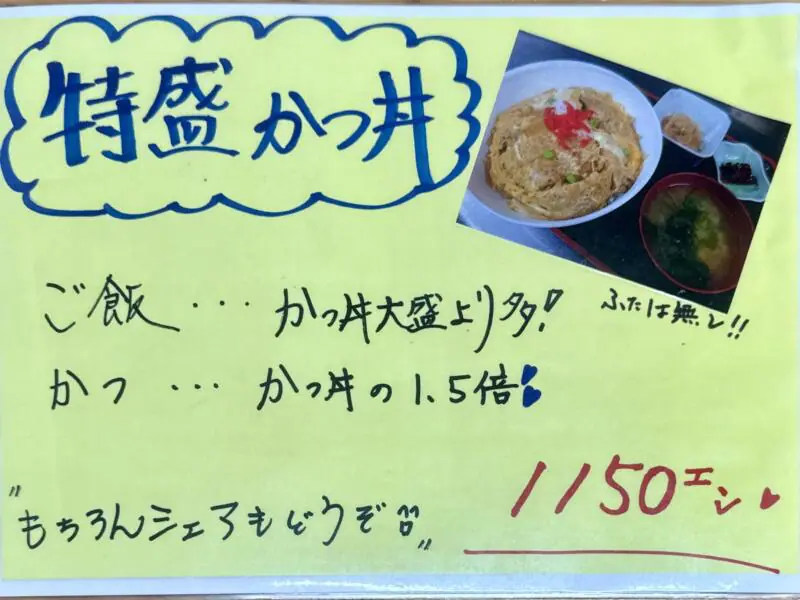 特盛かつ丼
ふたは無し!!
ご飯・・・かつ丼大盛より多!
かつ・・・かつ丼の1.5倍!
1150エン
"もちろんシェアもどうぞ!!"